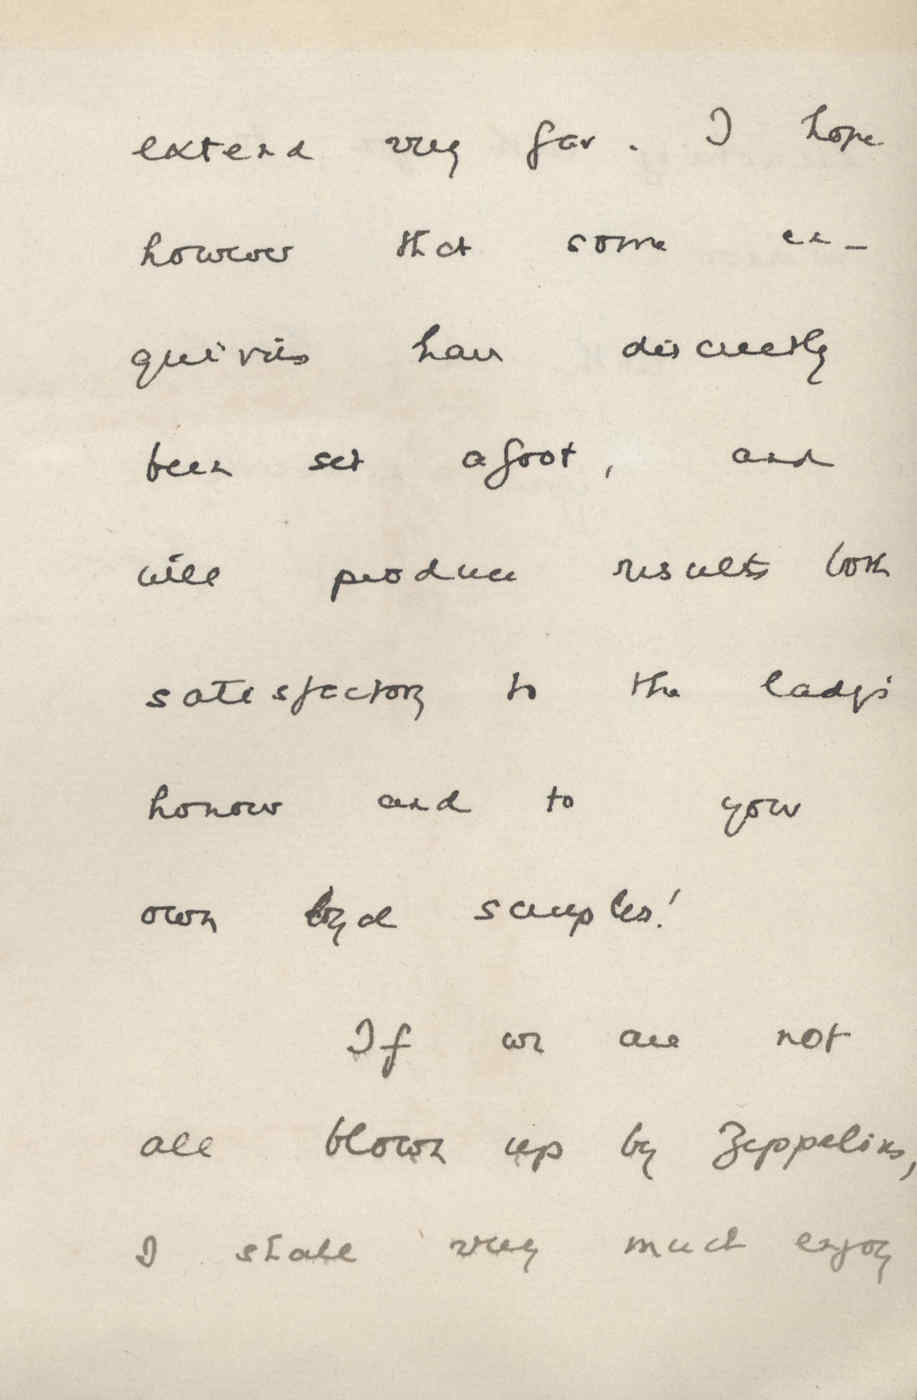 extend very far. I hope
however that some en-
quiries have discreetly
been set afoot, and
will produce results both
satisfactory to the lady's
honour and to your
own loyal scruples!
If we are not
all blown up by Zeppelins,
I shall very much enjoy